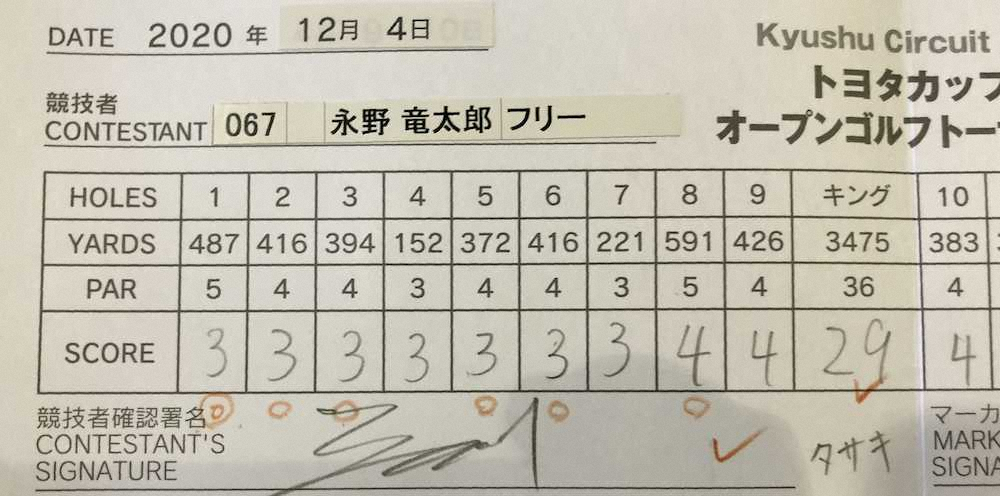 DATE 2020 年 12月 4日
Kyushu Circuit
トヨタカップ
オープンゴルフトー
競技者
CONTESTANT 067 永野 竜太郎 フリー
HOLES 1 2 3 4 5 6 7 8 9 キング 10
YARDS 487 416 394 152 372 416 221 591 426 3475 383
PAR 5 4 4 3 4 4 3 5 4 36 4
SCORE 3 3 3 3 3 3 3 4 4 29 4
競技者確認署名
CONTESTANT'S
SIGNATURE
タサキ
マーカ
MARK
SIGNA